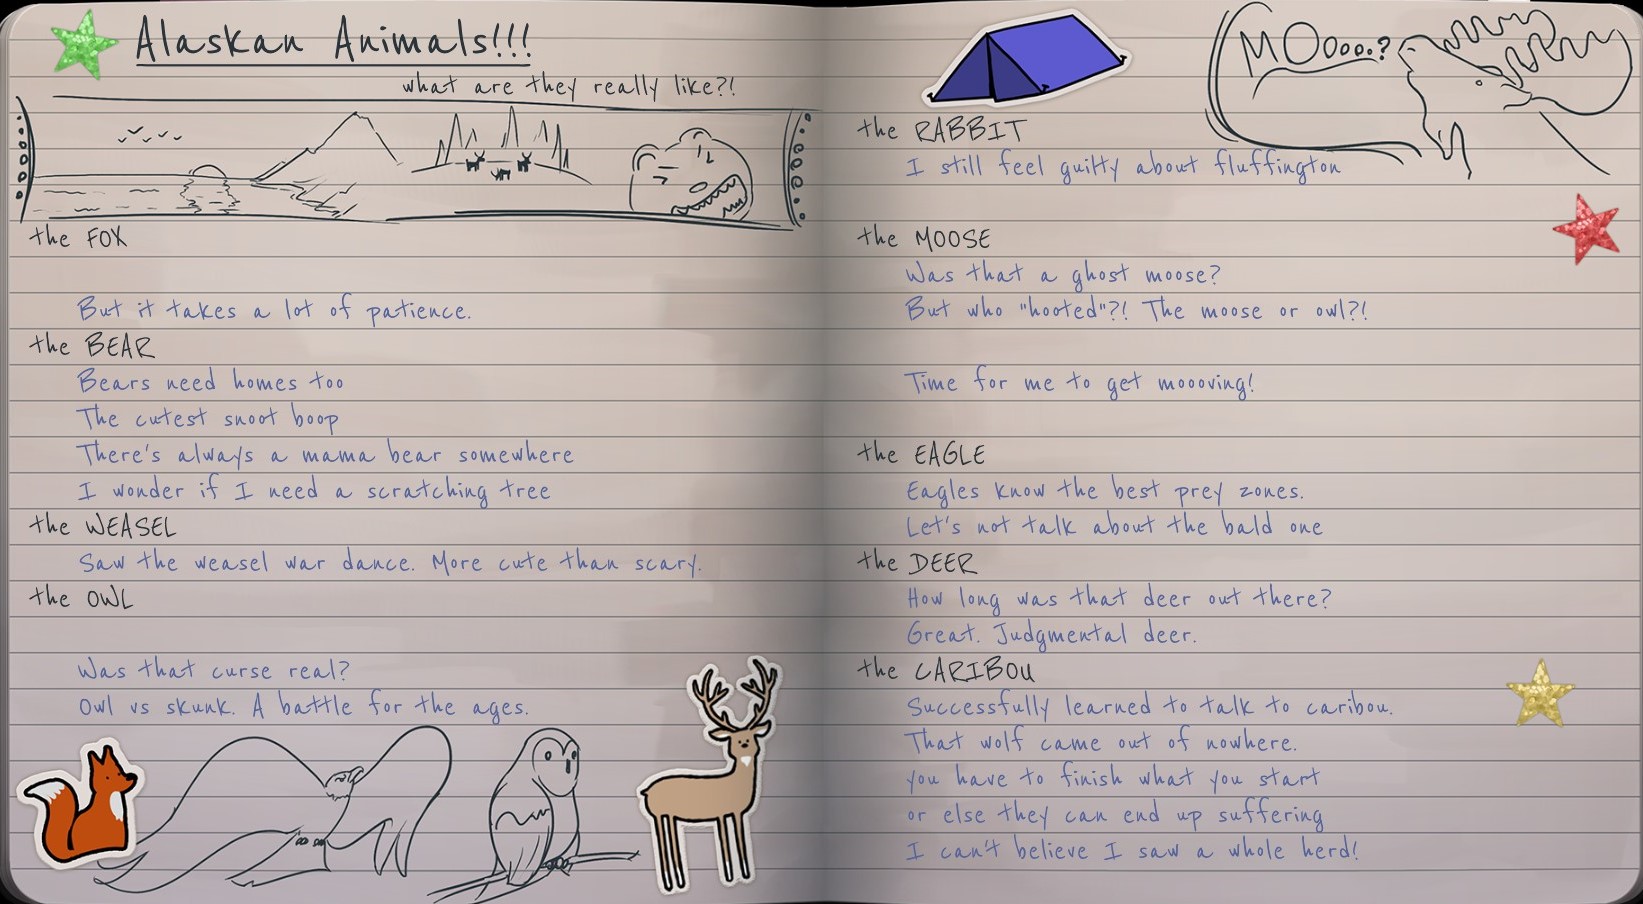 Alaskan Animals!!!
what are they really like?!
the FOX
But it takes a lot of patience.
the BEAR
Bears need homes too
The cutest snoot boop
There's always a mama bear somewhere
I wonder if I need a scratching tree
the WEASEL
Saw the weasel war dance. More cute than scary.
the OWL
Was that curse real?
Owl vs skunk. A battle for the ages.
MOooo..?
the RABBIT
I still feel guilty about fluffington
the MOOSE
Was that a ghost moose?
But who "hooted"?! The moose or owl?!
Time for me to get moooving!
the EAGLE
Eagles know the best prey zones.
Let's not talk about the bald one
the DEER
How long was that deer out there?
Great. Judgmental deer.
the CARIBOU
Successfully learned to talk to caribou.
That wolf came out of nowhere.
you have to finish what you start
or else they can end up suffering
I can't believe I saw a whole herd!